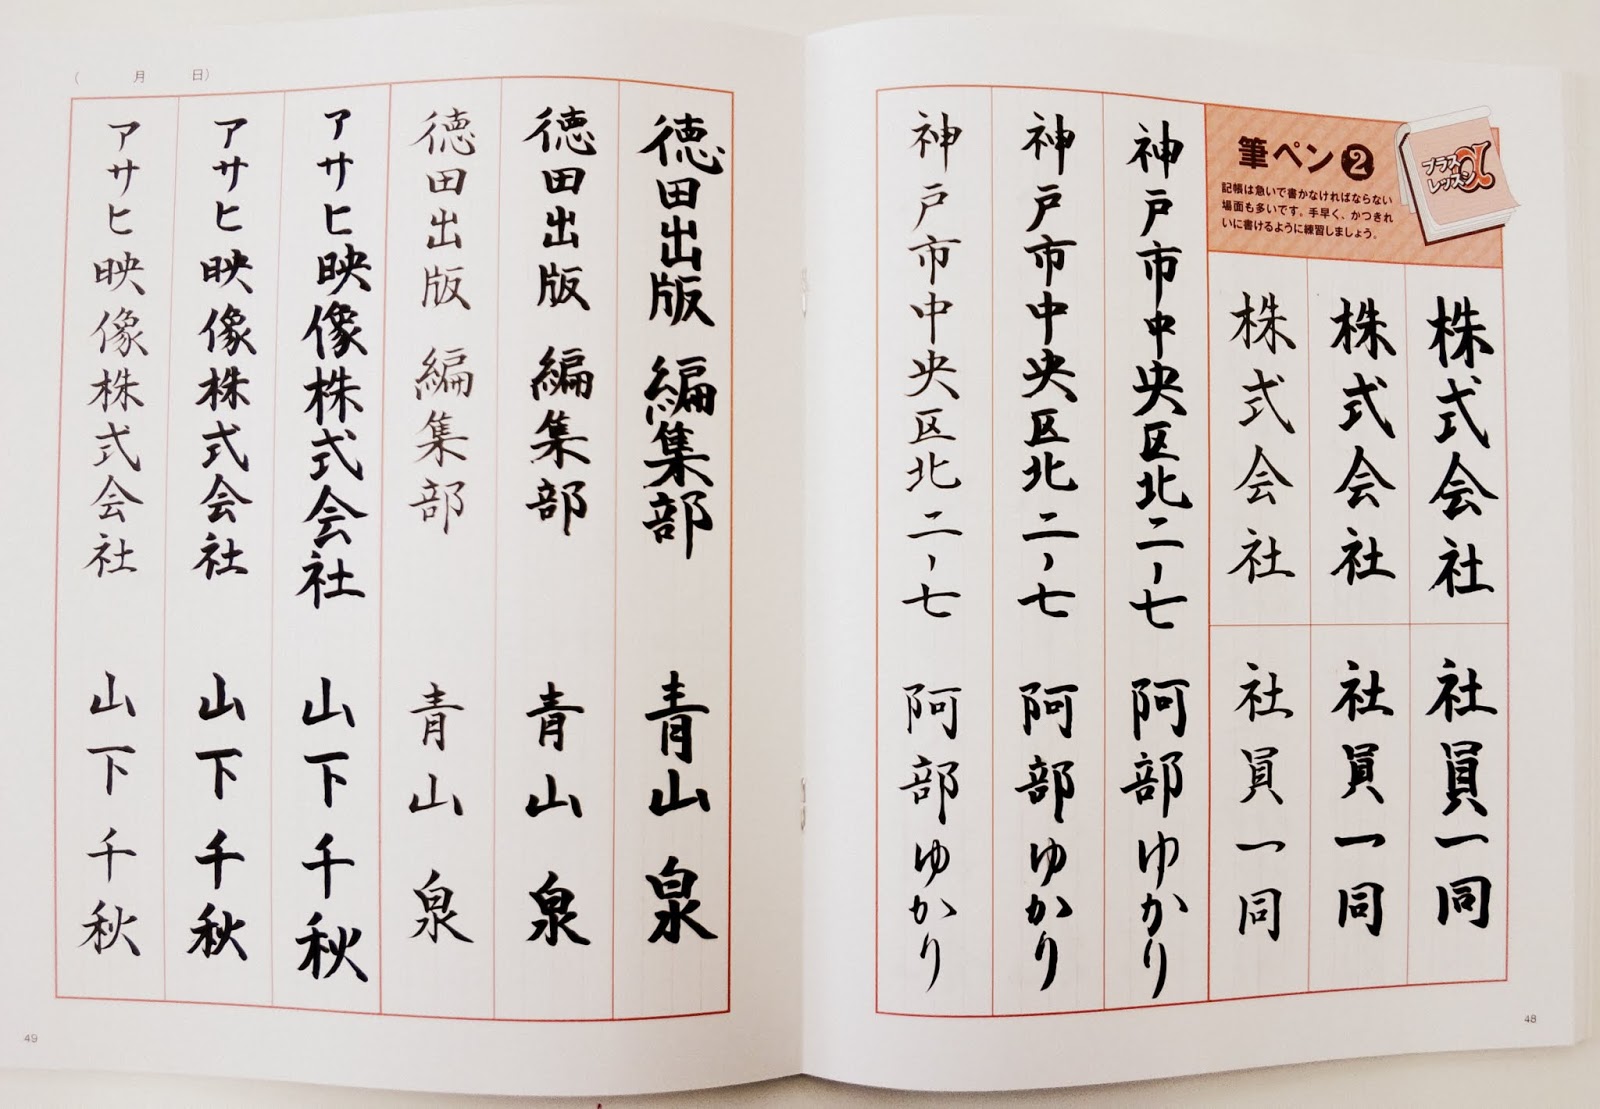 プラスα
レッスン
筆ペン2
記帳は急いで書かなければならない
場面も多いです。手早く、かつきれ
いに書けるように練習しましょう。
株式会社
株式会社
株式会社
社員一同
社員一同
社員一同
神戸市中央区北二ー七 阿部ゆかり
神戸市中央区北二ー七 阿部ゆかり
神戸市中央区北二ー七 阿部ゆかり
48
(　月　日)
徳田出版 編集部 青山 泉
徳田出版 編集部 青山 泉
徳田出版 編集部 青山 泉
アサヒ映像株式会社 山下千秋
アサヒ映像株式会社 山下千秋
アサヒ映像株式会社 山下千秋
49